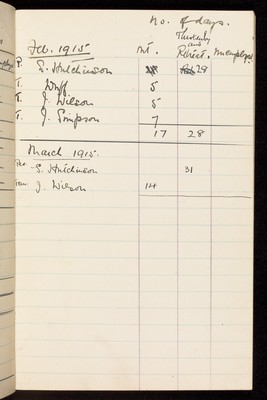 No. of days.
Feb. 1915. Int. Thursday and Retect. Unemployed.
P. S. Hutchinson 28
T. 5
T. J. Wilson 5
T. J. Simpson 7
17 28
March 1915.
Per. S. Hutchinson 31
Tem. J. Wilson 14